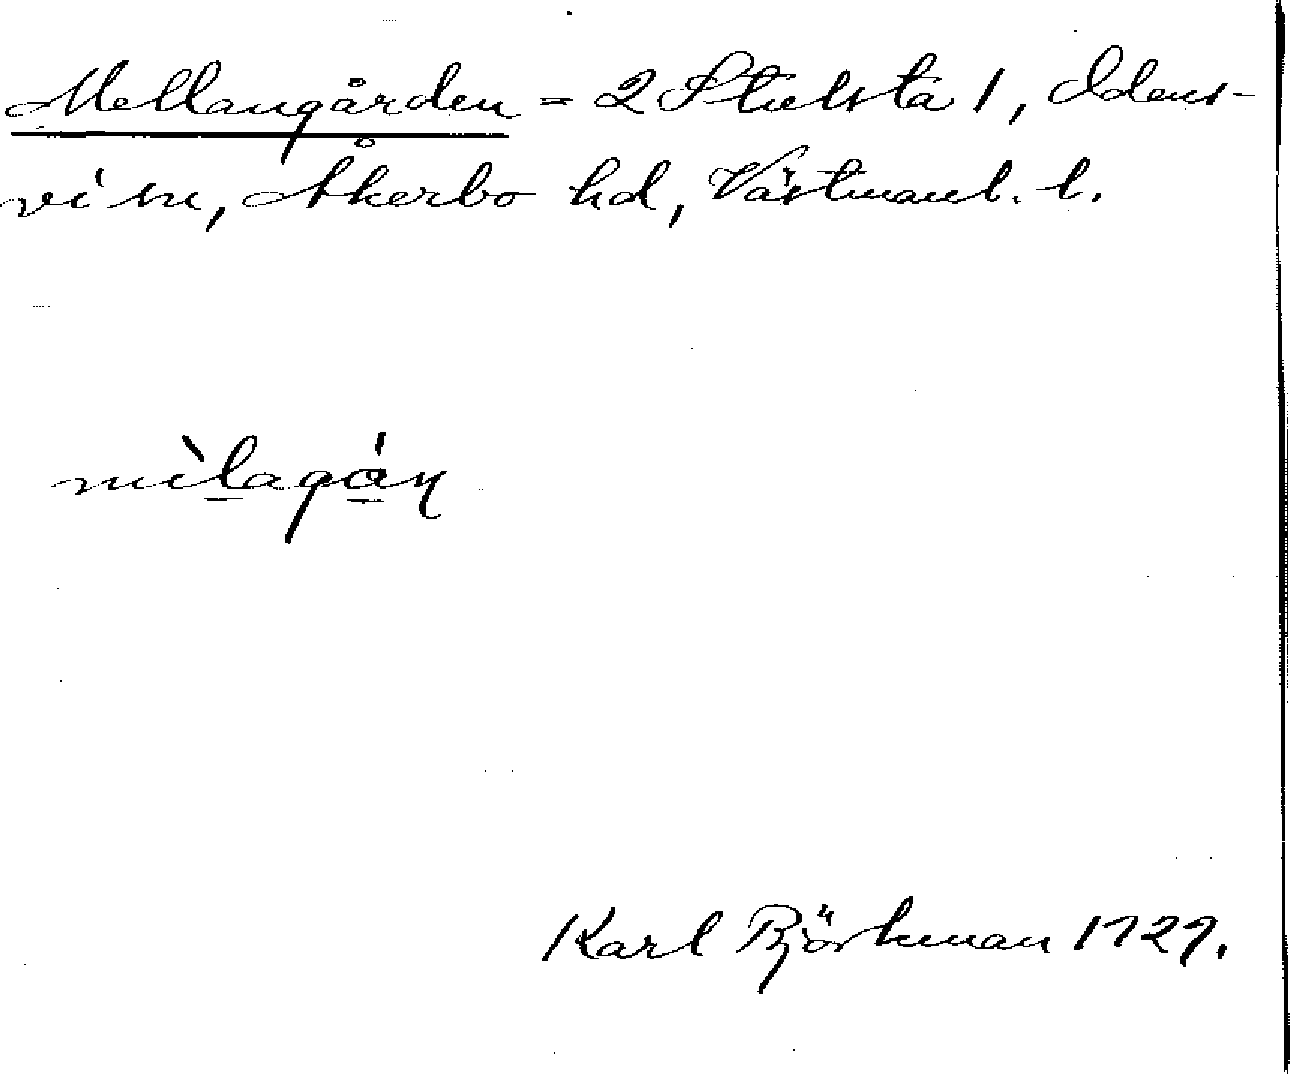 Mellangården = 2 Stulsta 1, Odens-
vi sn, Åkerbo hd, Västmanl. l.
mìlagán
Karl Björkman 1929.